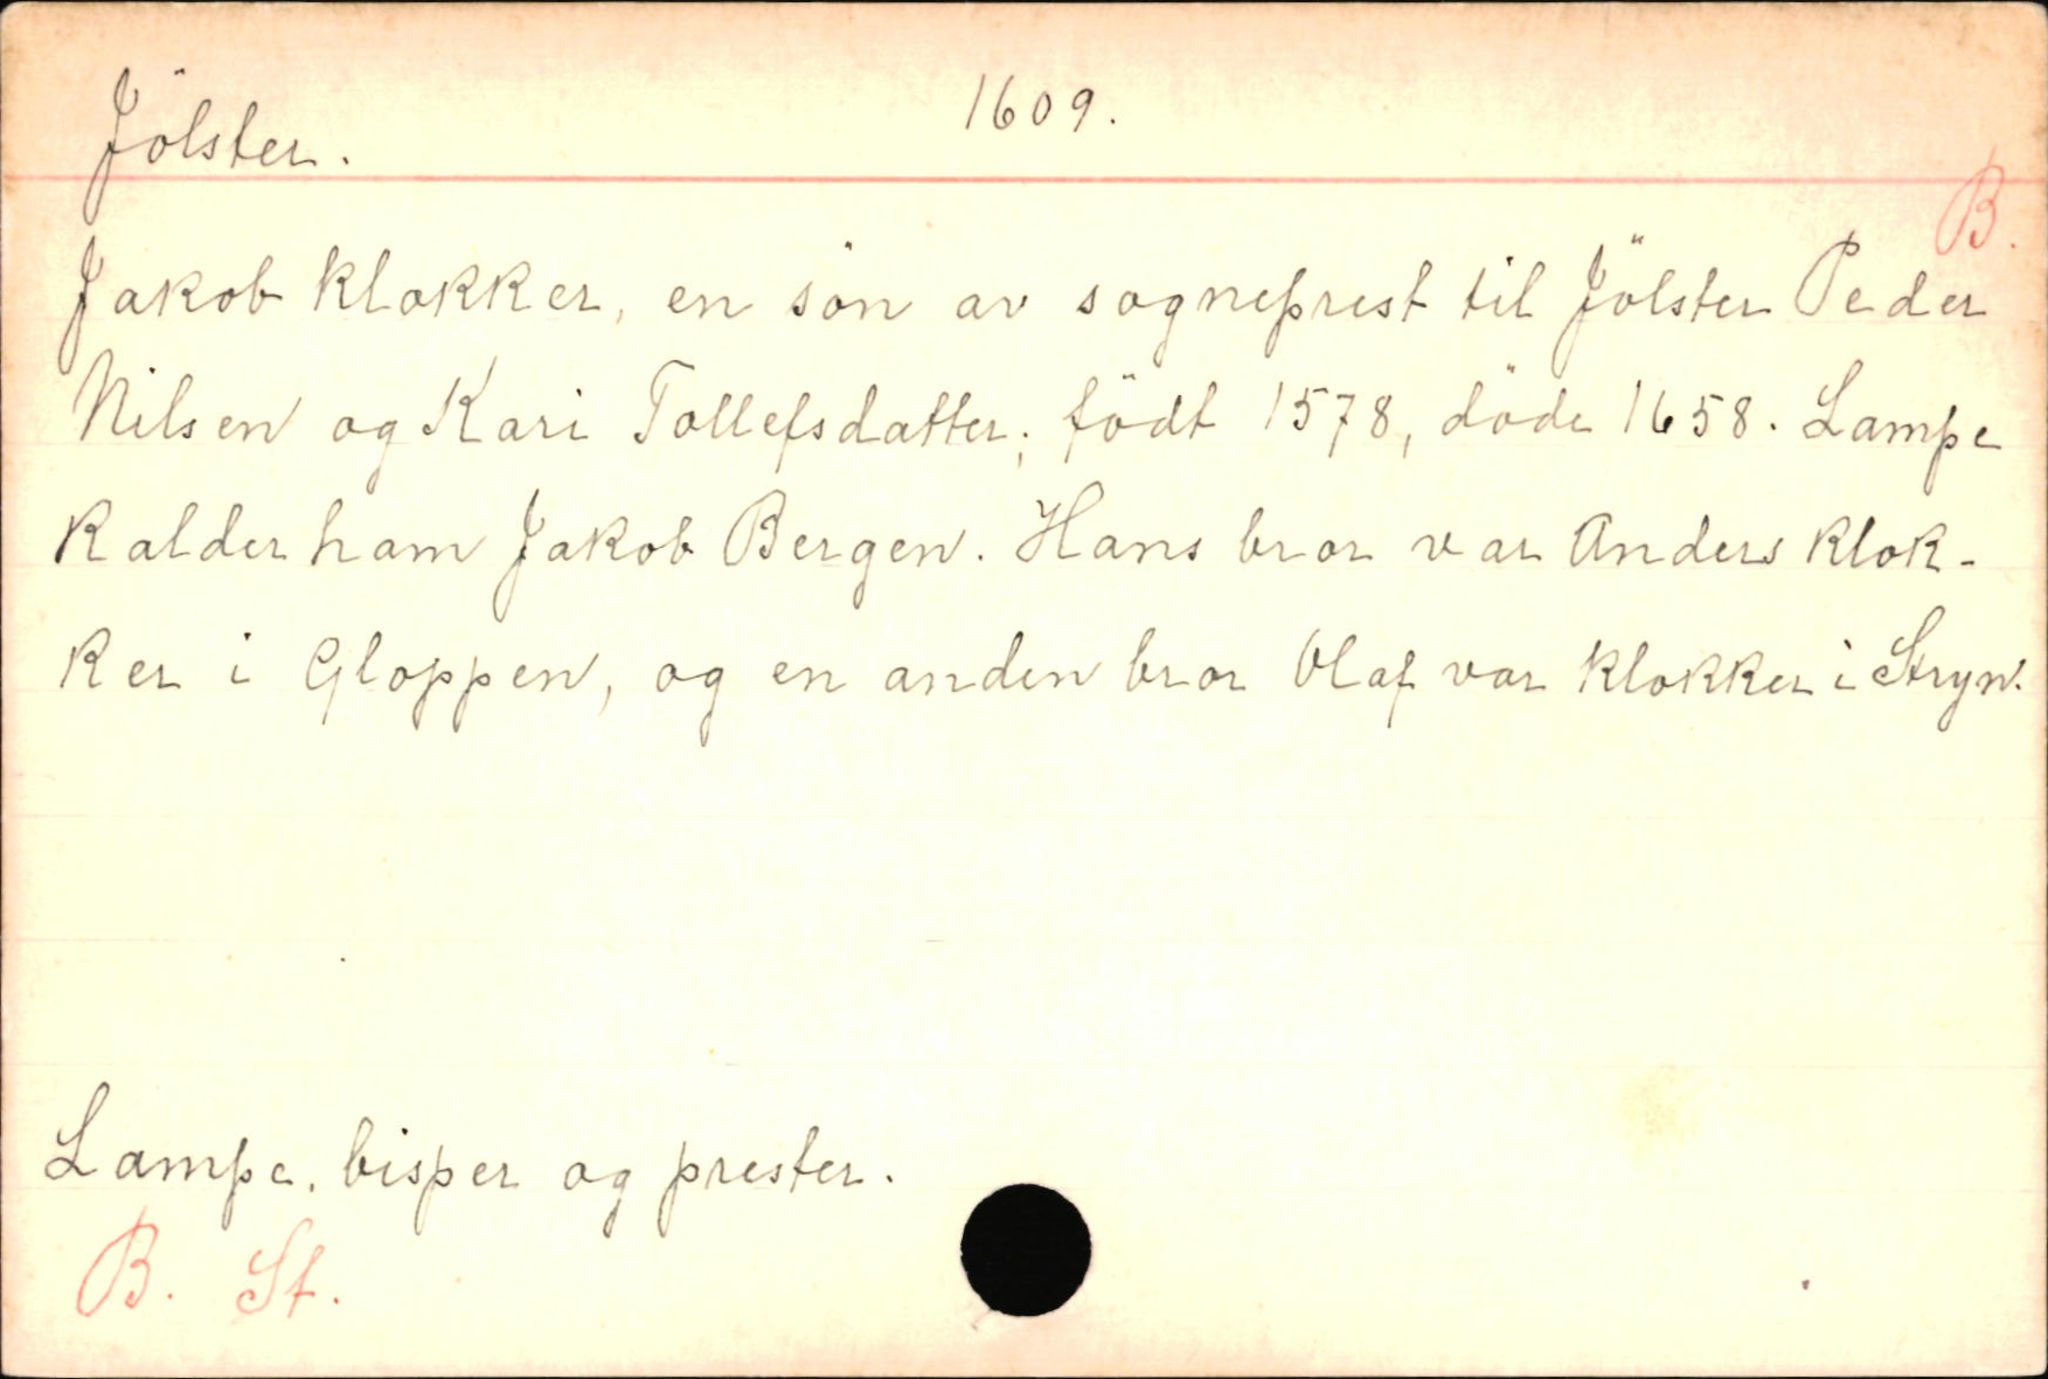 Jölster. 1609.
B.
Jakob klokker, en sön av sogneprest til Jölster Peder
Nilsen og Kari Tollefsdatter; födt 1578, döde 1658. Lampe
kalder ham Jakob Bergen. Hans bror var Anders klok-
ker i Gloppen, og en anden bror Olaf var klokker i Stryn.
Lampe. bisper og prester.
B. St.